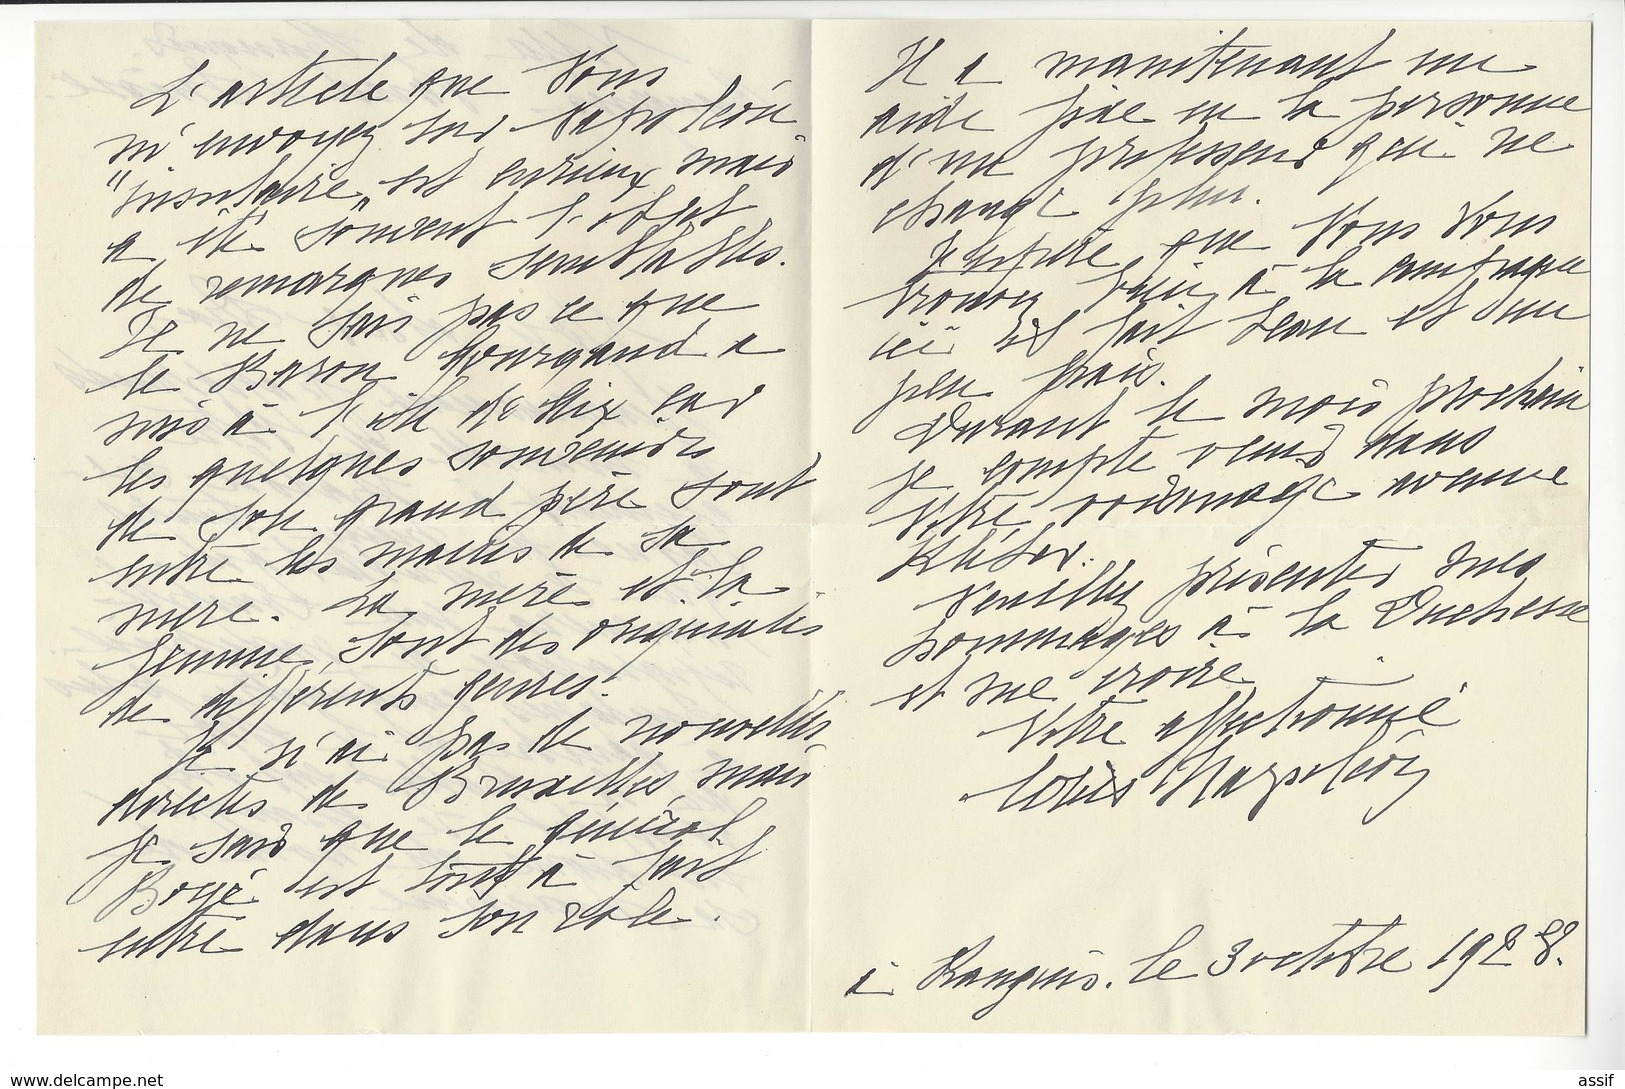 L'article que Vous
m'envoyez sur Napoléon
"insulaire" est curieux, mais
a été souvent l'objet
de remarques semblables.
Je ne sais pas ce que
le Baron Gourgaud a
mis à l'île d'Aix car
les quelques souvenirs
de son grand père sont
entre les mains de sa
mère. La mère et la
femme, sont des originales
de différents genres.
Je n'ai pas de nouvelles
directes de Bruxelles, mais
je sais que le général
Boyé est tout à fait
entré dans son rôle.
Il a maintenant un
aide fixe en la personne
d'un professeur qui ne
change plus.
J'espère que Vous Vous
trouvez bien à la campagne
ici il fait beau et un
peu frais.
Durant le mois prochain
je compte venir dans
Votre voisinage avenue
Kléber.
Veuillez présenter mes
hommages à la Duchesse
et me croire
Votre affectionné
Louis Napoléon
à Prangins. le 3 octobre 1928.
www.delcampe.net
assif